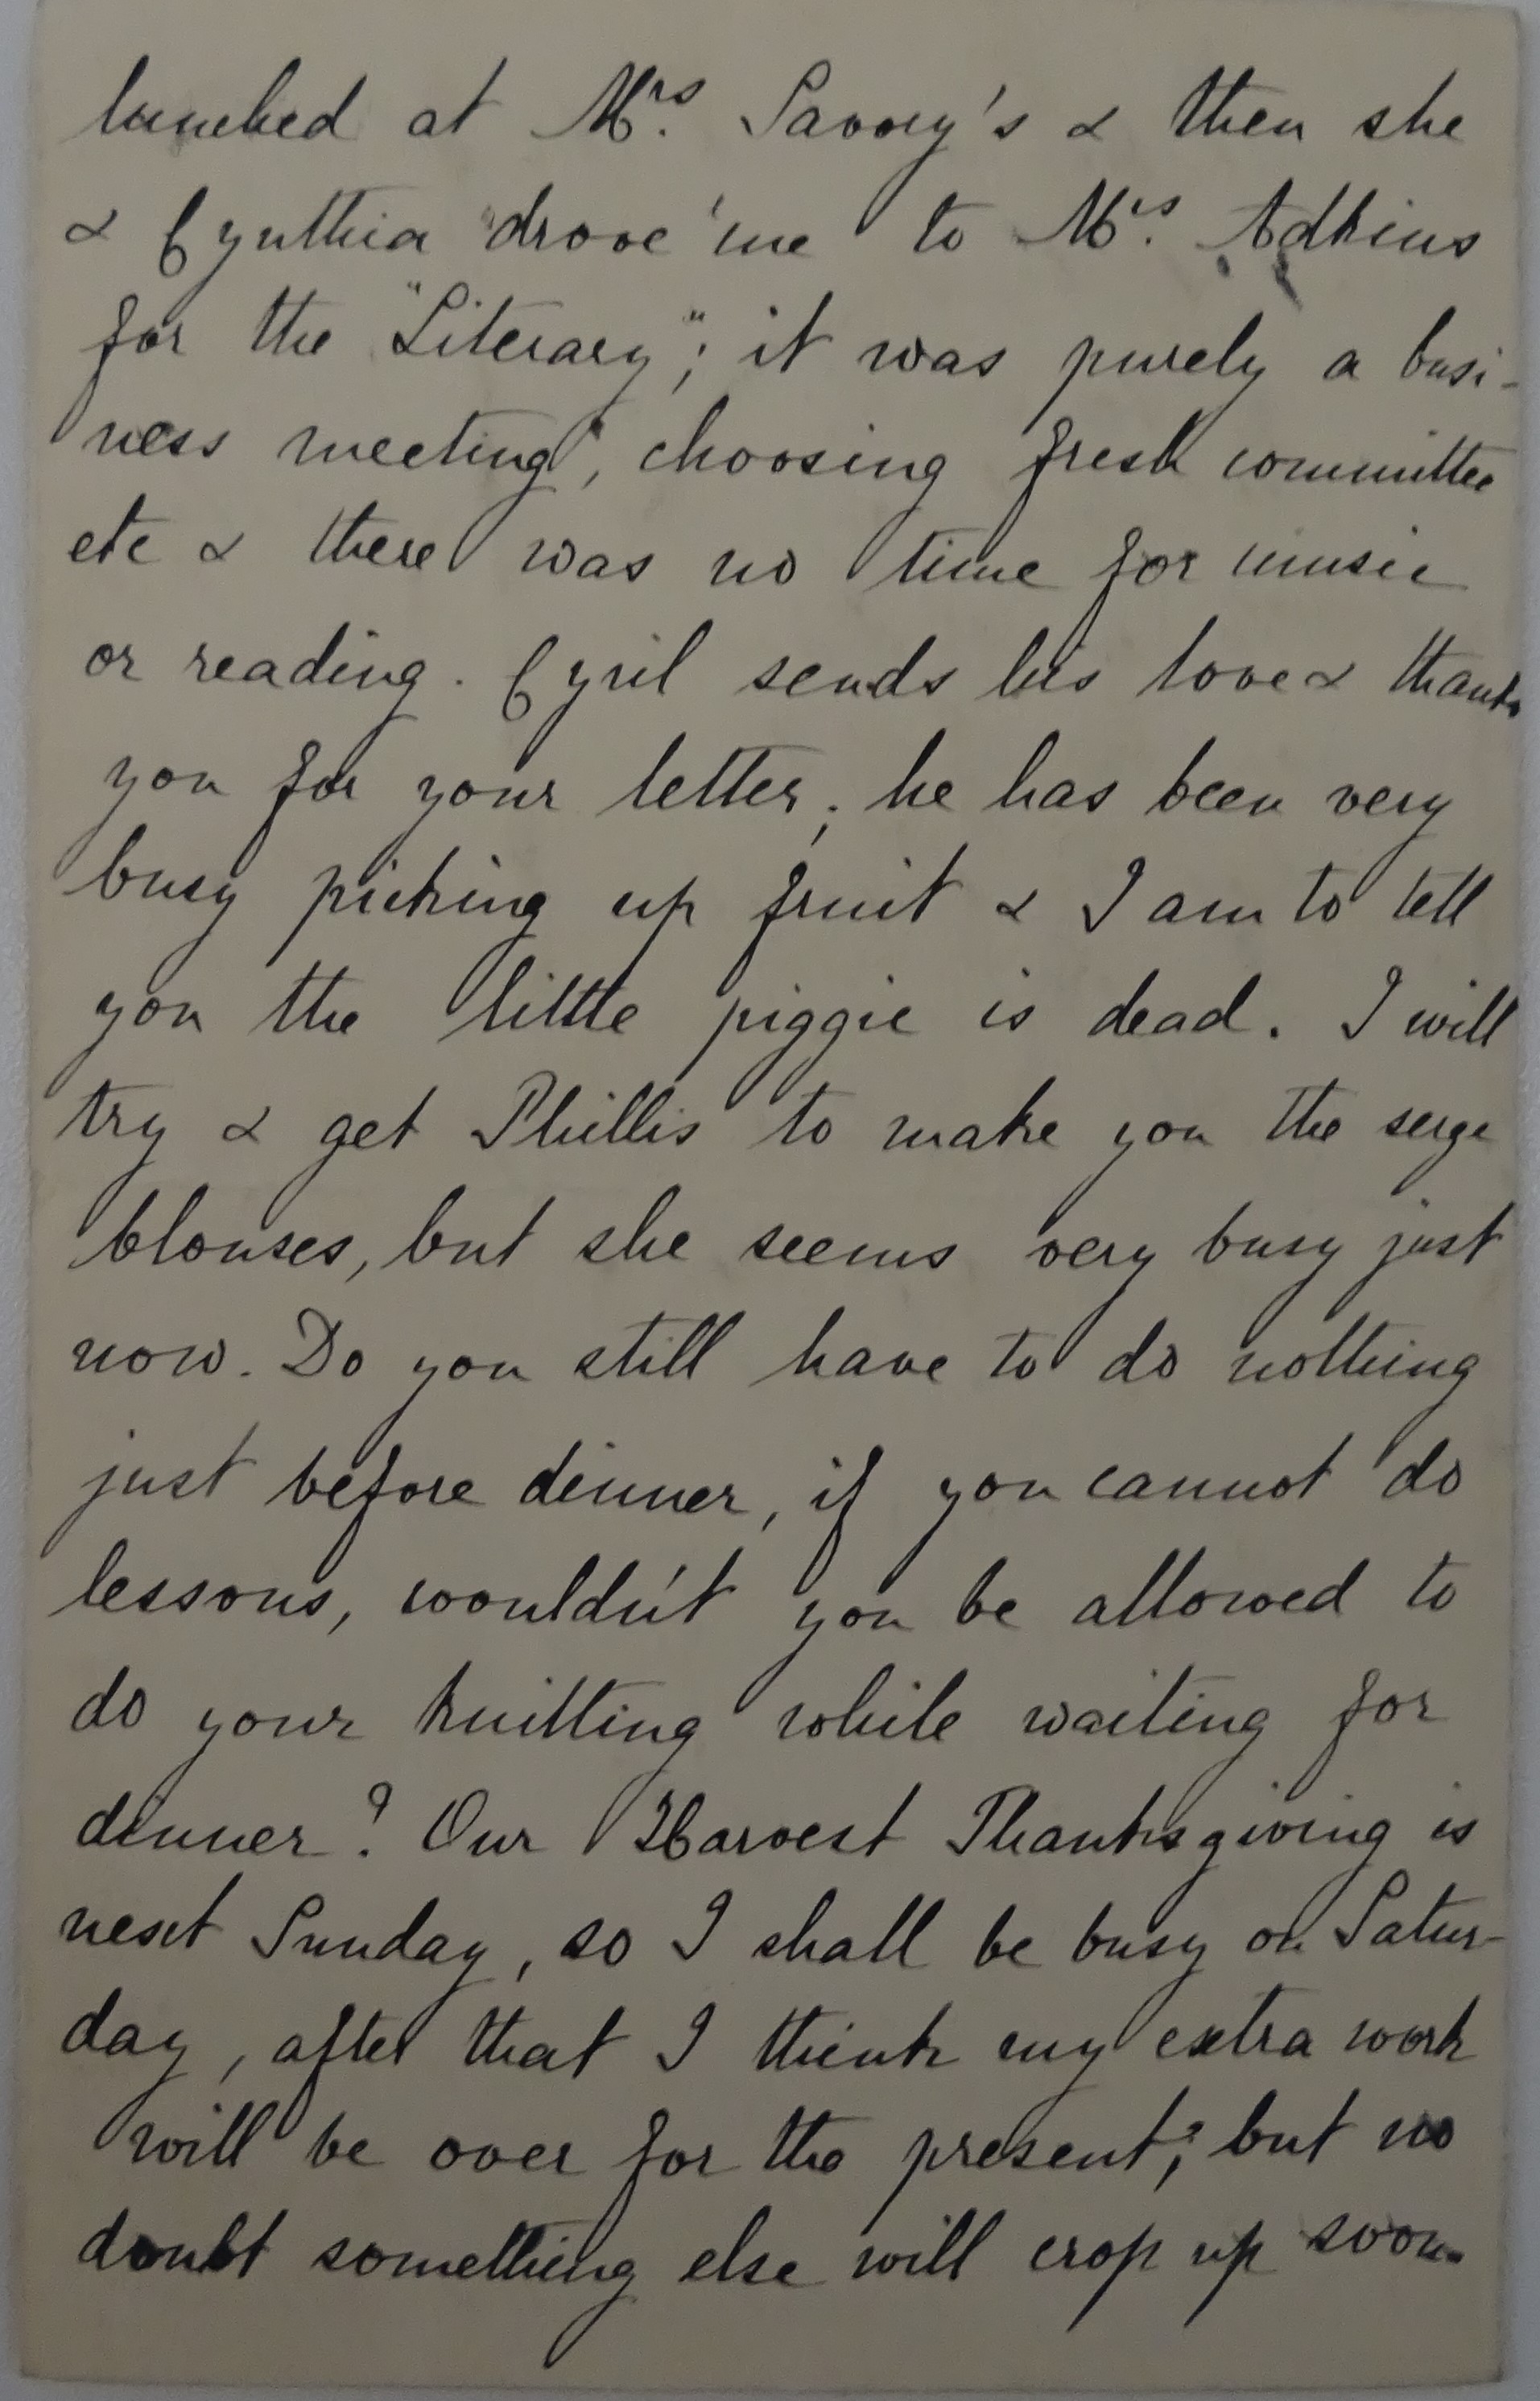 lunched at Mrs. Savory's & then she
& Cynthia drove me to Mrs. Adkins
for the "Literary"; it was purely a busi-
ness meeting, choosing fresh committee
etc & there was no time for music
or reading. Cyril sends his love & thanks
you for your letter; he has been very
busy picking up fruit & I am to tell
you the little piggie is dead. I will
try & get Phillis to make you the serge
blouses, but she seems very busy just
now. Do you still have to do nothing
just before dinner, if you cannot do
lessons, wouldn't you be allowed to
do your knitting while waiting for
dinner? Our Harvest Thanksgiving is
next Sunday, so I shall be busy on Satur-
day, after that I think my extra work
will be over for the present; but no
doubt something else will crop up soon.